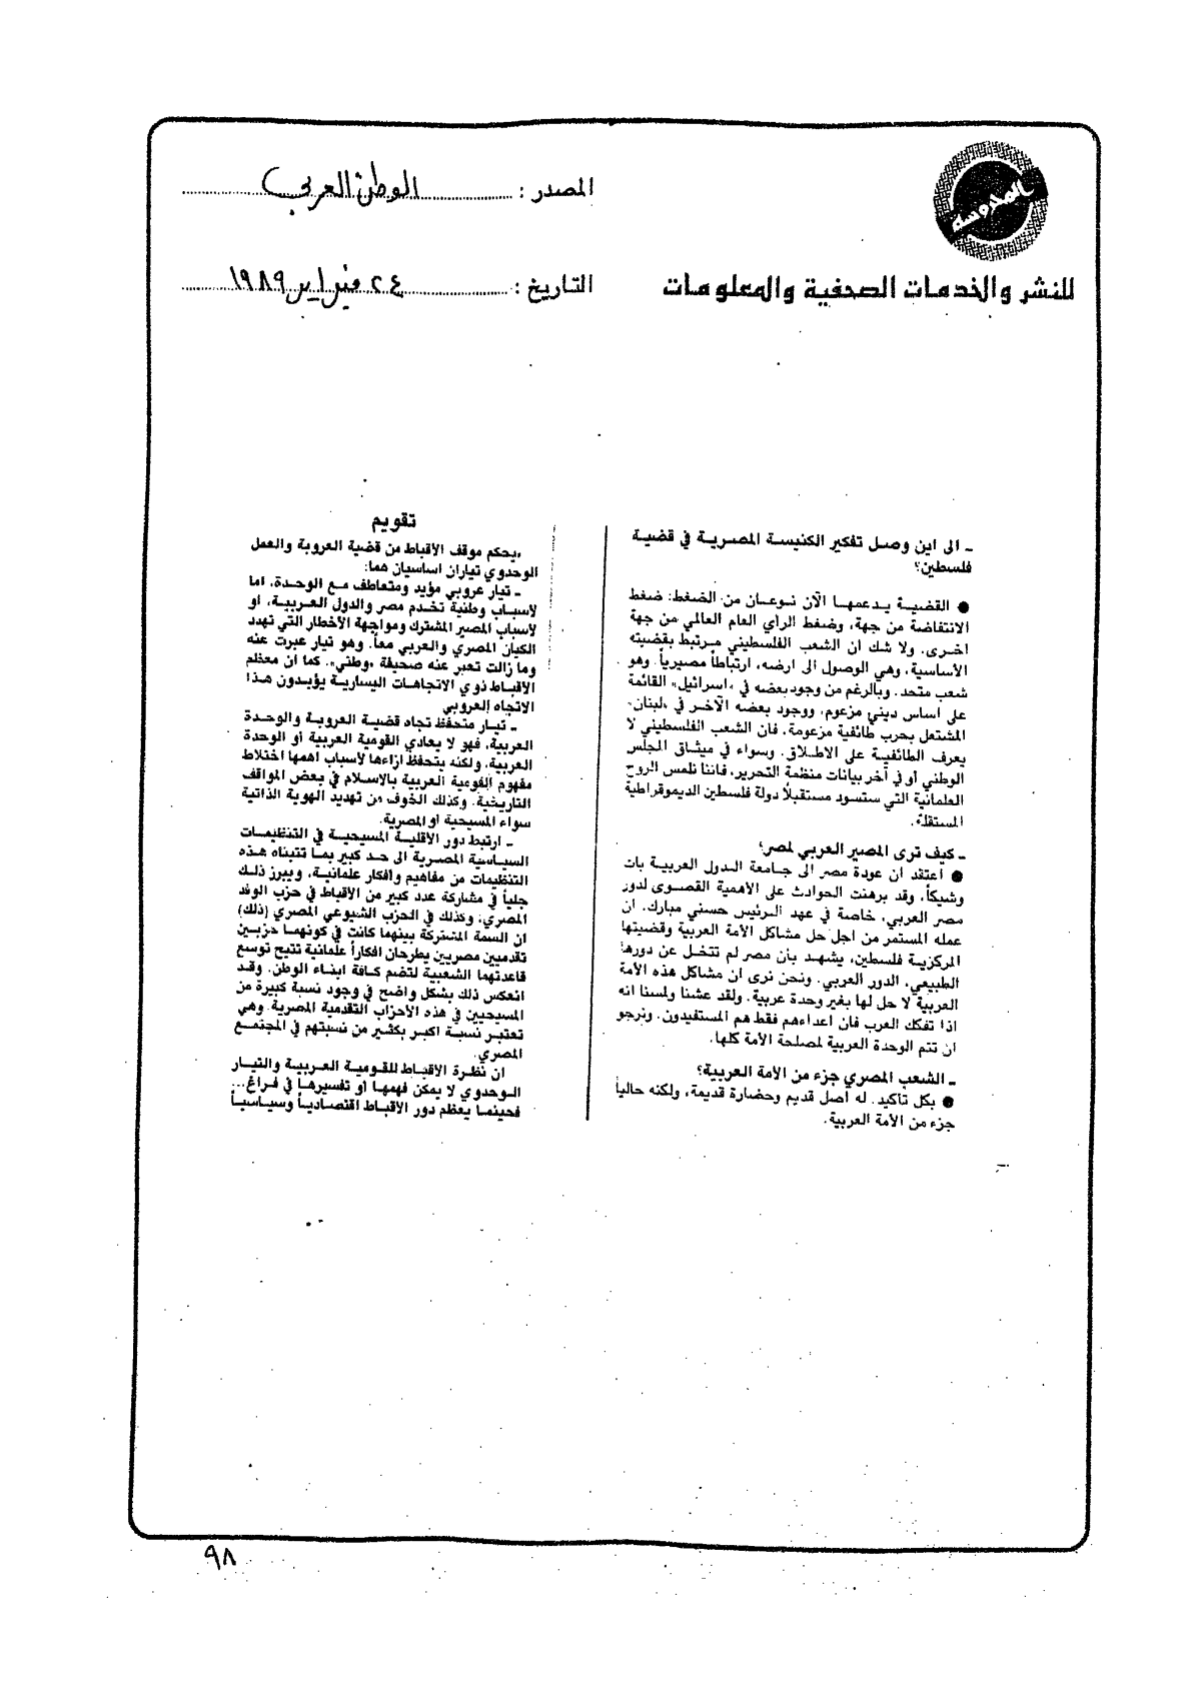 المحروسة
للنشر والخدمات الصحفية والمعلومات
المصدر : الوطن العربي
التاريخ : ٢٤ فبراير ١٩٨٩
ـ الى اين وصل تفكير الكنيسة المصرية في قضية
فلسطين؟
● القضية يدعمها الآن نوعان من الضغط: ضغط
الانتفاضة من جهة، وضغط الرأي العام العالمي من جهة
اخرى. ولا شك ان الشعب الفلسطيني مرتبط بقضيته
الأساسية، وهي الوصول الى ارضه، ارتباطاً مصيرياً. وهو
شعب متحد. وبالرغم من وجود بعضه في «اسرائيل» القائمة
على اساس ديني مزعوم، ووجود بعضه الآخر في «لبنان»
المشتعل بحرب طائفية مزعومة، فان الشعب الفلسطيني لا
يعرف الطائفية على الاطلاق. وسواء في ميثاق المجلس
الوطني أو في آخر بيانات منظمة التحرير، فاننا نلمس الروح
العلمانية التي ستسود مستقبلاً دولة فلسطين الديموقراطية
المستقلة.
ـ كيف ترى المصير العربي لمصر؟
● أعتقد ان عودة مصر الى جامعة الدول العربية بات
وشيكاً، وقد برهنت الحوادث على الأهمية القصوى لدور
مصر العربي، خاصة في عهد الرئيس حسني مبارك. ان
عمله المستمر من اجل حل مشاكل الأمة العربية وقضيتها
المركزية فلسطين، يشهد بأن مصر لم تتخل عن دورها
الطبيعي، الدور العربي. ونحن نرى ان مشاكل هذه الأمة
العربية لا حل لها بغير وحدة عربية. ولقد عشنا ولمسنا انه
اذا تفكك العرب فان اعداءهم فقط هم المستفيدون. ونرجو
ان تتم الوحدة العربية لمصلحة الأمة كلها.
ـ الشعب المصري جزء من الأمة العربية؟
● بكل تأكيد. له أصل قديم وحضارة قديمة، ولكنه حالياً
جزء من الأمة العربية.
تقويم
«يحكم موقف الأقباط من قضية العروبة والعمل
الوحدوي تياران اساسيان هما:
ـ تيار عروبي مؤيد ومتعاطف مع الوحدة، اما
لأسباب وطنية تخدم مصر والدول العربية، او
لأسباب المصير المشترك ومواجهة الأخطار التي تهدد
الكيان المصري والعربي معاً. وهو تيار عبرت عنه
وما زالت تعبر عنه صحيفة «وطني». كما ان معظم
الأقباط ذوي الاتجاهات اليسارية يؤيدون هذا
الاتجاه العروبي
ـ تيار متحفظ تجاه قضية العروبة والوحدة
العربية، فهو لا يعادي القومية العربية أو الوحدة
العربية، ولكنه يتحفظ ازاءها لأسباب اهمها اختلاط
مفهوم القومية العربية بالاسلام في بعض المواقف
التاريخية. وكذلك الخوف من تهديد الهوية الذاتية
سواء المسيحية او المصرية.
ـ ارتبط دور الأقلية المسيحية في التنظيمات
السياسية المصرية الى حد كبير بما تتبناه هذه
التنظيمات من مفاهيم وأفكار علمانية، ويبرز ذلك
جلياً في مشاركة عدد كبير من الأقباط في حزب الوفد
المصري، وكذلك في الحزب الشيوعي المصري (ذلك)
ان السمة المشتركة بينهما كانت في كونهما حزبين
تقدميين مصريين يطرحان افكاراً علمانية تتيح توسع
قاعدتهما الشعبية لتضم كافة ابناء الوطن. وقد
انعكس ذلك بشكل واضح في وجود نسبة كبيرة من
المسيحيين في هذه الأحزاب التقدمية المصرية. وهي
تعتبر نسبة اكبر بكثير من نسبتهم في المجتمع
المصري.
ان نظرة الأقباط للقومية العربية والتيار
الوحدوي لا يمكن فهمها أو تفسيرها في فراغ...
فحينما يعظم دور الأقباط اقتصادياً وسياسياً
٩٨